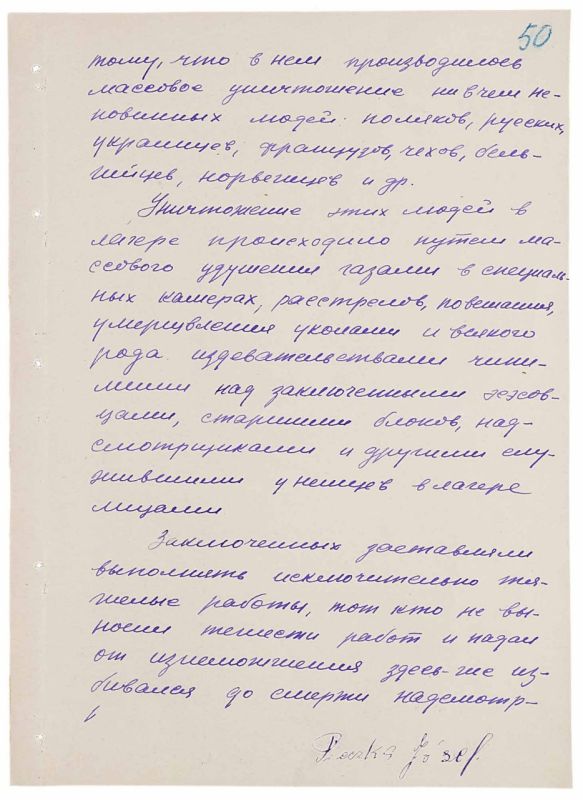 50
тому, что в нем производилось
массовое уничтожение ни в чем не-
повинных людей: поляков, русских,
украинцев, французов, чехов, бель-
гийцев, норвежцев и др.
Уничтожение этих людей в
лагере происходило путем ма-
ссового удушения газами в специаль-
ных камерах, расстрелов, повешания,
умерщвления уколами и всякого
рода издевательствами чини-
мыми над заключенными эсэсов-
цами, старшими блоков, над-
смотрщиками и другими слу-
жившими у немцев в лагере
лицами
Заключенных заставляли
выполнять исключительно тя-
желые работы, тот кто не вы-
носил тяжести работ и падал
от изнеможжения здесь-же из-
бивался до смерти надсмотр-
Józef